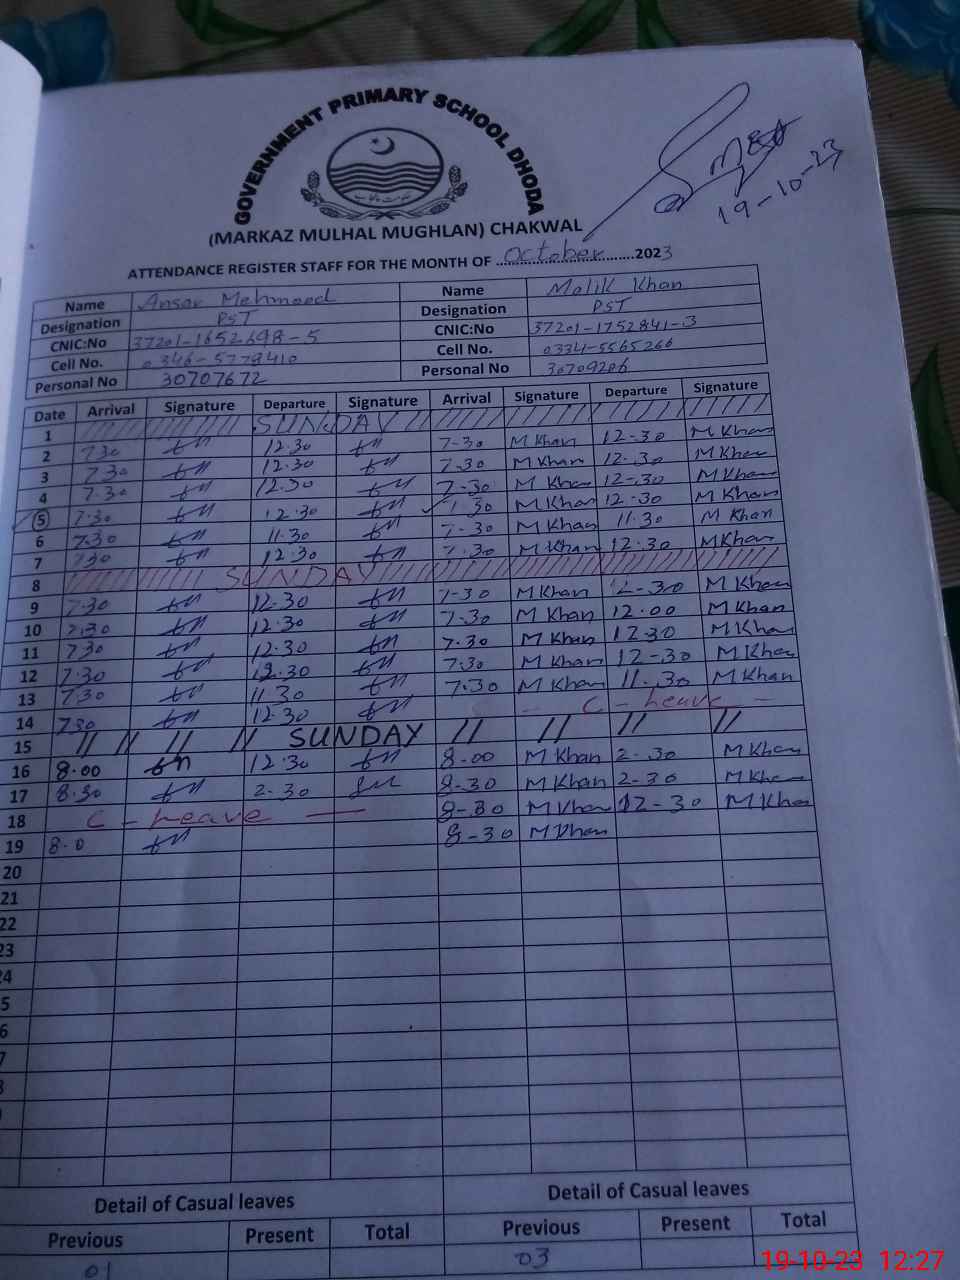 GOVERNMENT PRIMARY SCHOOL DHODA
19-10-23
(MARKAZ MULHAL MUGHLAN) CHAKWAL
ATTENDANCE REGISTER STAFF FOR THE MONTH OF October 2023
Name Ansar Mehmood Name Malik Khan
Designation PST Designation PST
CNIC:No 37201-1652698-5 CNIC:No 37201-1752841-3
Cell No. 0346-5778410 Cell No. 0334-5565266
Personal No 30707672 Personal No 30709206
Date Arrival Signature Departure Signature Arrival Signature Departure Signature
1 SUNDAY
2 7.30 12.30 7-30 M Khan 12-30 M Khan
3 7.30 12.30 7.30 M Khan 12.30 M Khan
4 7.30 12.30 7-30 M Khan 12-30 M Khan
5 7.30 12.30 7.30 M Khan 12-30 M Khan
6 7.30 11.30 7-30 M Khan 11.30 M Khan
7 7.30 12.30 7.30 M Khan 12.30 M Khan
8 SUNDAY
9 7.30 12.30 7-30 M Khan 12-30 M Khan
10 7.30 12.30 7.30 M Khan 12.00 M Khan
11 7.30 12.30 7.30 M Khan 12.30 M Khan
12 7.30 12.30 7.30 M Khan 12-30 M Khan
13 7.30 11.30 7.30 M Khan 11.30 M Khan
14 7.30 12.30 C - Leave -
15 // // // // SUNDAY // // // //
16 8.00 12.30 8-00 M Khan 2-30 M Khan
17 8.30 2-30 8-30 M Khan 2-30 M Khan
18 C - Leave 8-30 M Khan 12-30 M Khan
19 8.0 8-30 M Khan
20
21
22
23
24
5
6
7
Detail of Casual leaves Detail of Casual leaves
Previous Present Total Previous Present Total
01 03
19-10-23 12:27